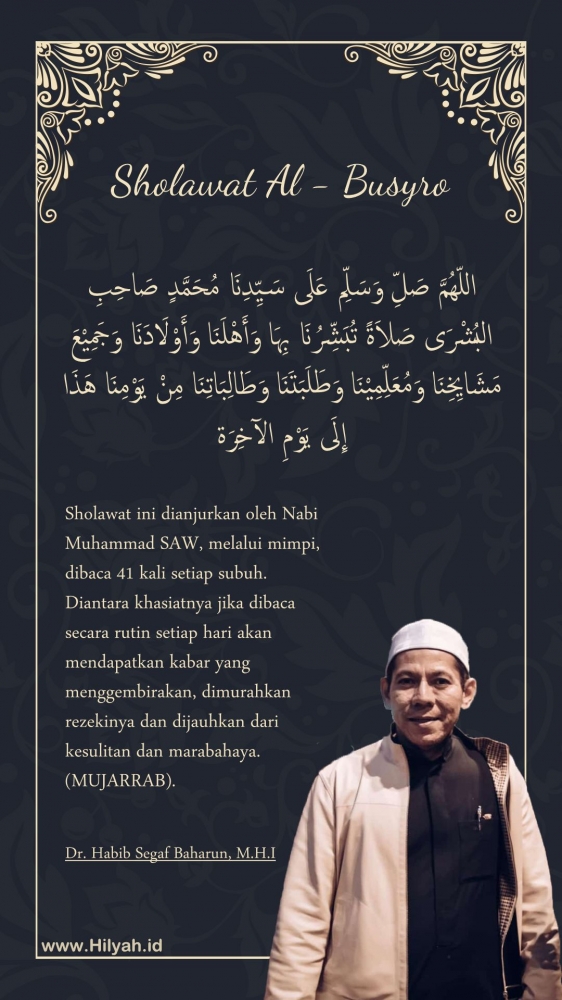 Sholawat Al - Busyro
اللّهُمَّ صَلِّ وَسَلِّم عَلَى سَيِّدِنَا مُحَمَّدٍ صَاحِبِ
البُشْرَى صَلاَةً تُبَشِّرُنَا بِهَا وَأَهْلَنَا وَأَوْلَادَنَا وَجَمِيْعَ
مَشَايِخِنَا وَمُعَلِّمِيْنَا وَطَلَبَتَنَا وَطَالِبَاتِنَا مِنْ يَوْمِنَا هَذَا
إِلَى يَوْمِ الآخِرَة
Sholawat ini dianjurkan oleh Nabi
Muhammad SAW, melalui mimpi,
dibaca 41 kali setiap subuh.
Diantara khasiatnya jika dibaca
secara rutin setiap hari akan
mendapatkan kabar yang
menggembirakan, dimurahkan
rezekinya dan dijauhkan dari
kesulitan dan marabahaya.
(MUJARRAB).
Dr. Habib Segaf Baharun, M.H.I
www.Hilyah.id